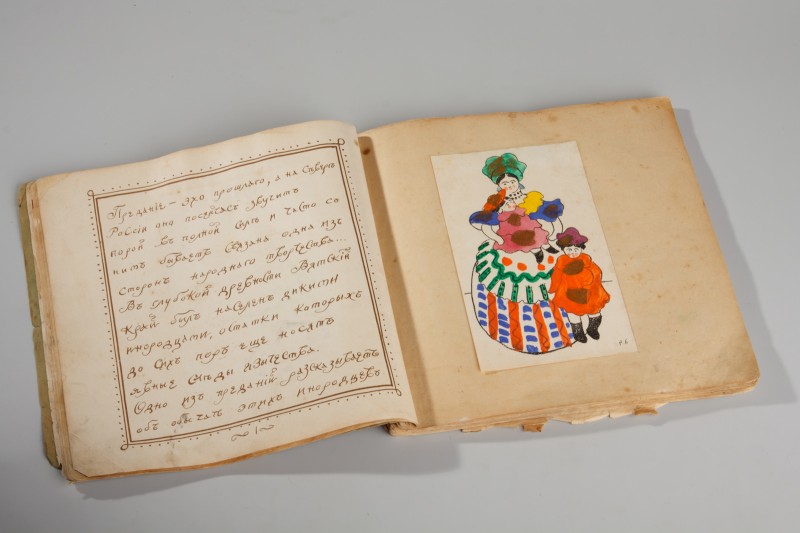 Преданiе – эхо прошлаго, а на Сѣверѣ
Россiи оно посейчасъ звучитъ
порой въ полной силѣ и часто съ
нимъ бываетъ связана одна изъ
сторонъ народнаго творчества...
Въ глубокой древности Вятскiй
край былъ населенъ дикими
инородцами, остатки которыхъ
до сихъ поръ еще носятъ
явные слѣды язычества.
Одно изъ преданiй разсказываетъ
объ обычаѣ этихъ инородцевъ
1